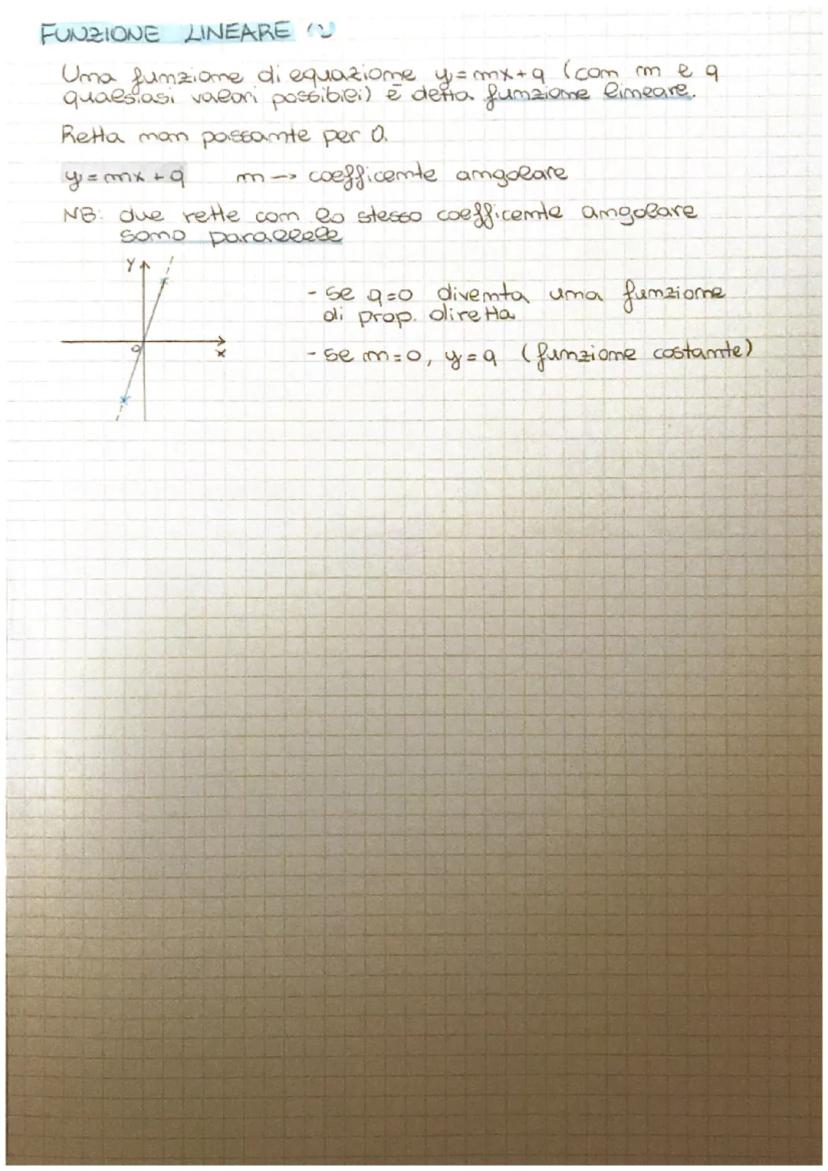 FUNZIONE LINEARE
Una funzione di equazione y = mx + q (con m e q
qualsiasi valori possibili) è detta funzione lineare.
Retta non passante per O.
y = mx + q m → coefficente angolare
NB: due rette con lo stesso coefficente angolare
sono parallele
y
- se q=0 diventa una funzione
di prop. diretta
o
x
- se m=0, y=q (funzione costante)